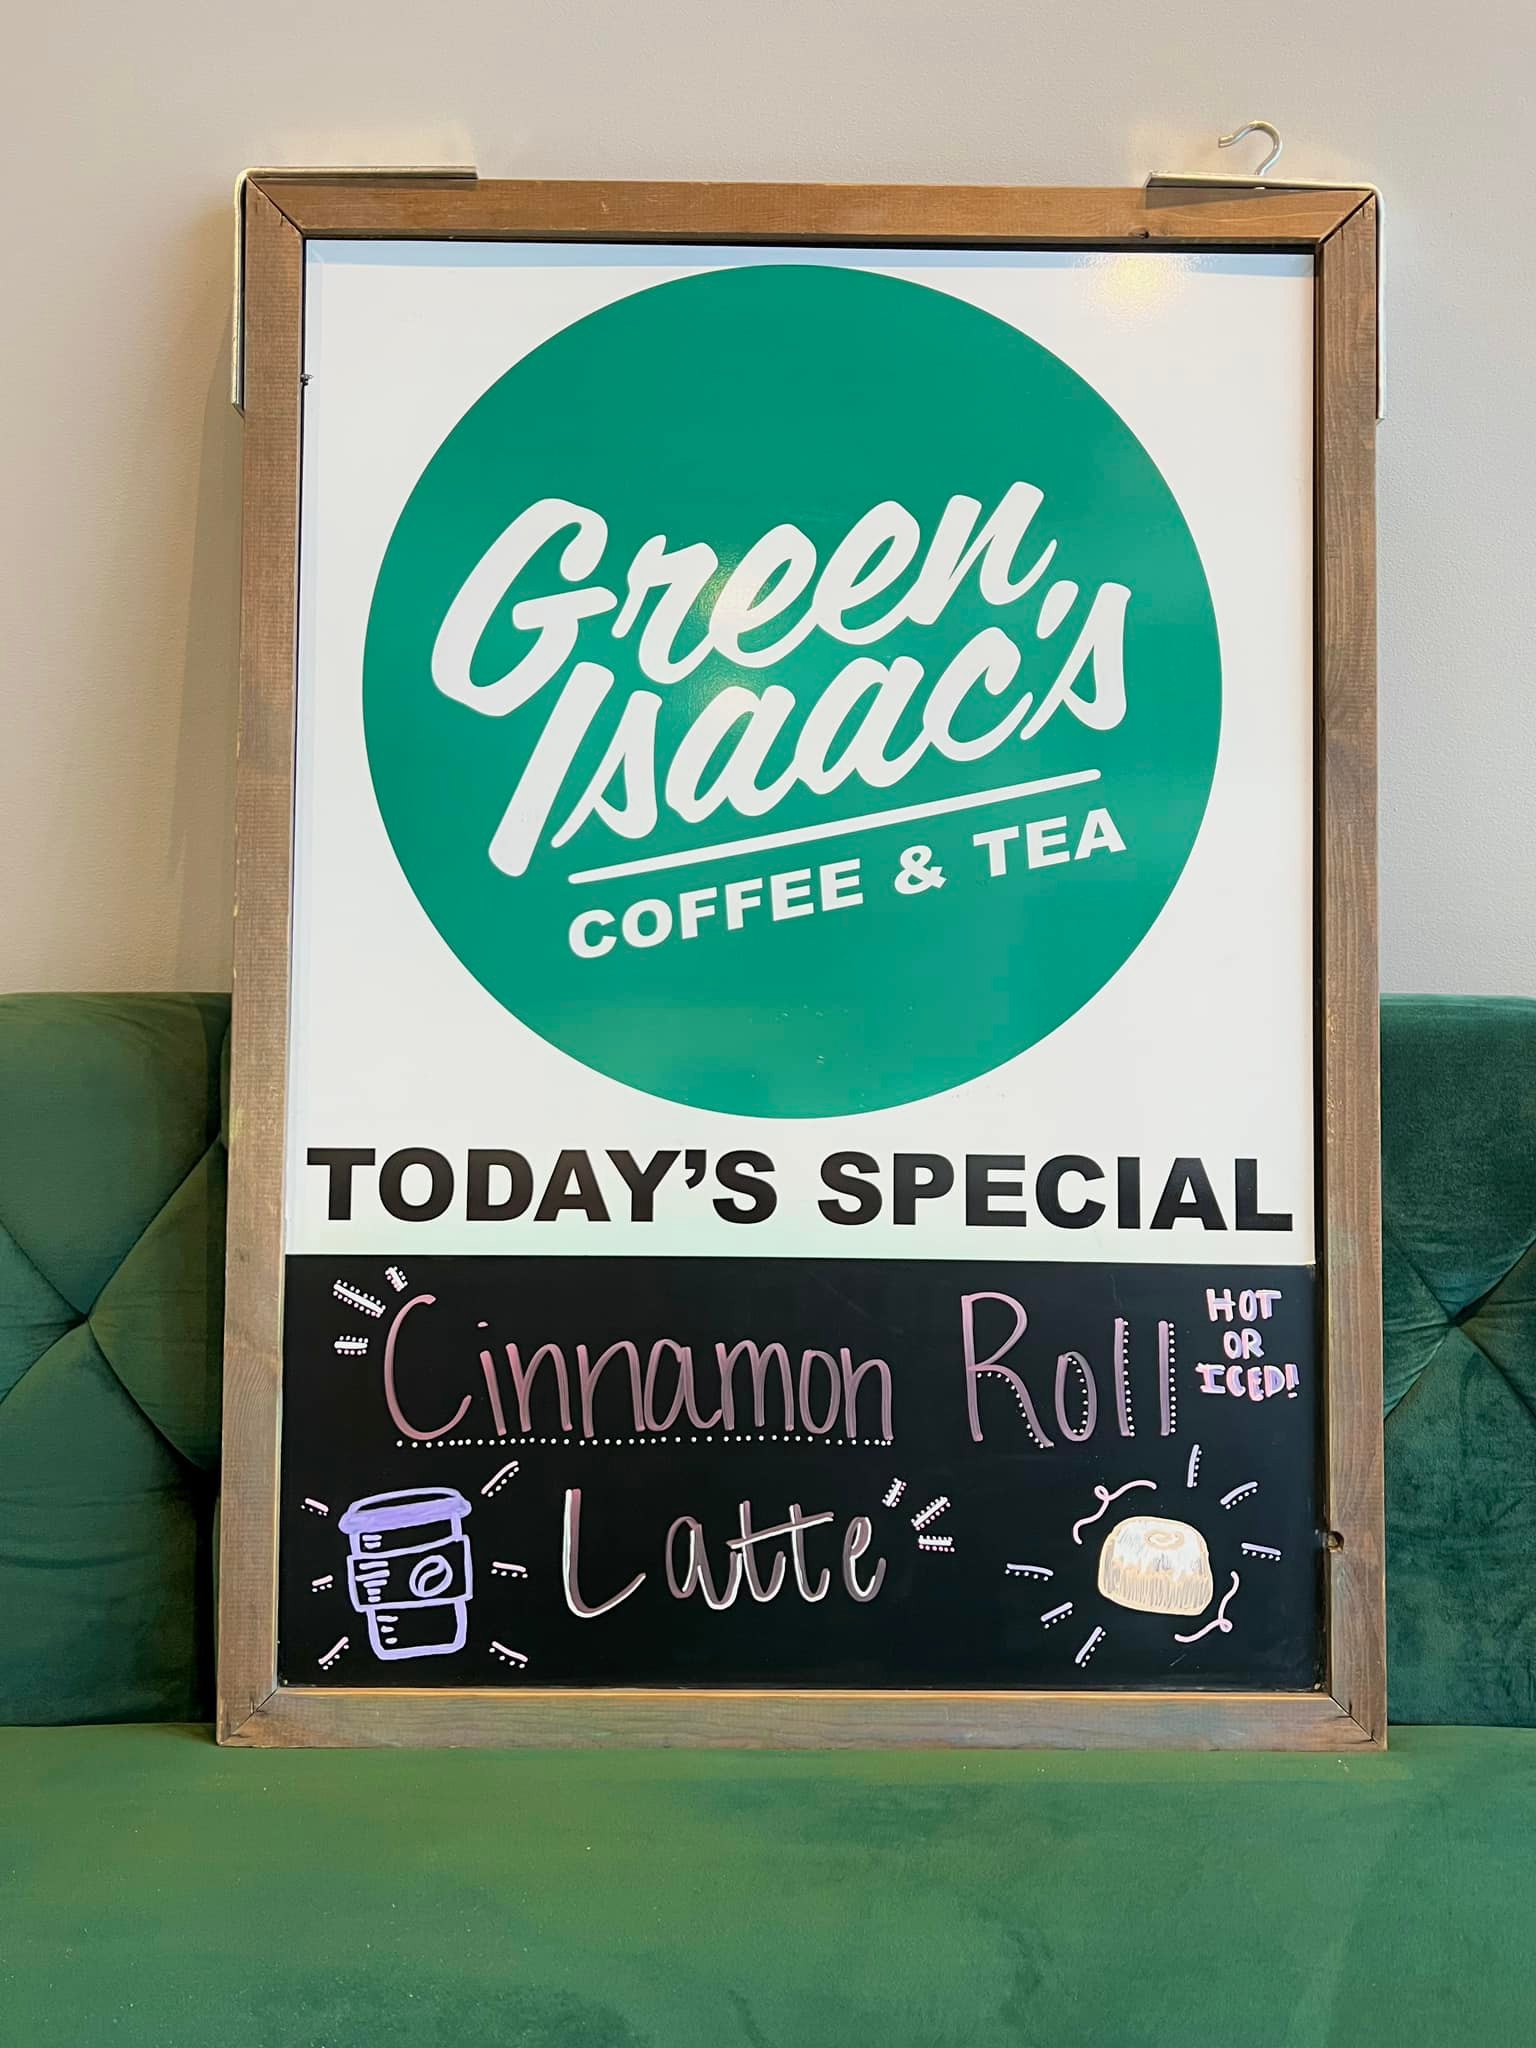 Green
Isaac's
COFFEE & TEA
TODAY'S SPECIAL
Cinnamon Roll
HOT
OR
ICED!!
Latte